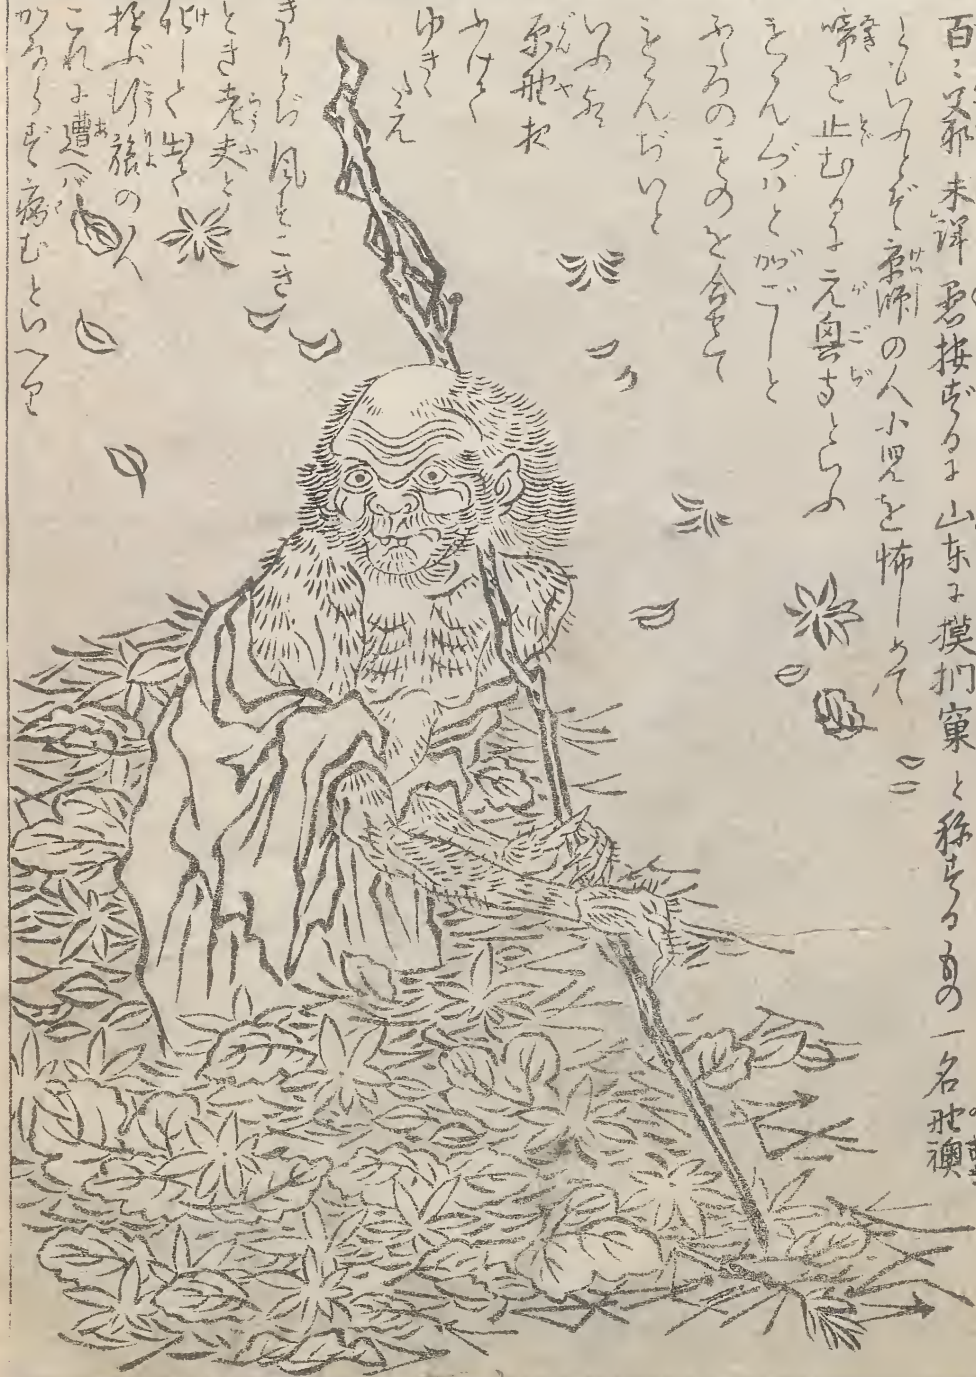 百々爺未詳 愚按ずるに 山東に摸捫窠と称するもの 一名野襖
ともいふとぞ 京師の人小児を怖しめて
啼を止むるに元興寺といふ
もゝんぢいとがごしと
ふたつのものを合せて
もゝんぢいと
いふ歟
原野夜
ふけて
ゆきゝたえ
きりとぢ風すごき
とき老夫と
化して出て
遊ぶ行旅の人
これに遭へば
かならず病むといへり